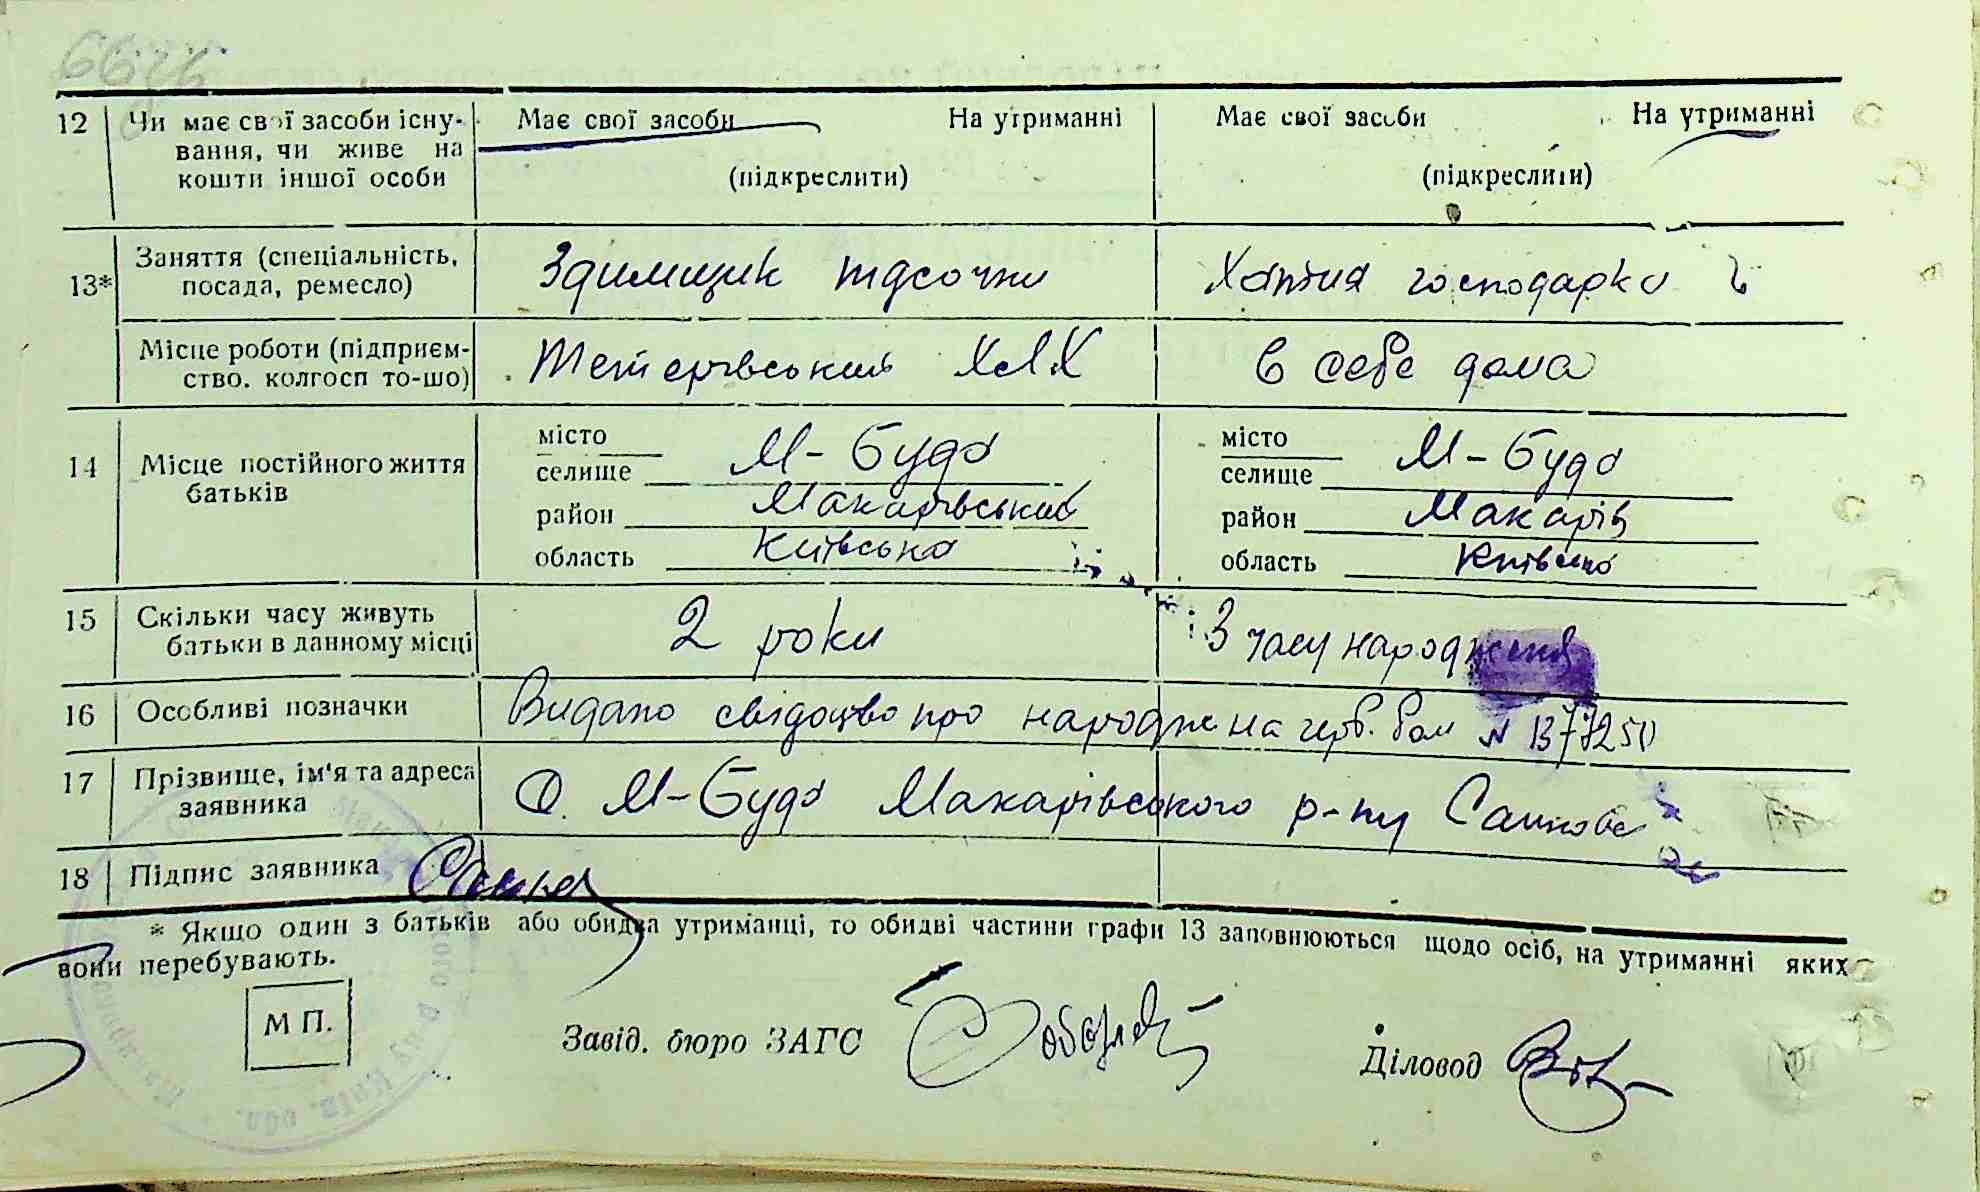 12 Чи має свої засоби існу- Має свої засоби На утриманні Має свої засоби На утриманні
вання, чи живе на
кошти іншої особи (підкреслити) (підкреслити)
13* Заняття (спеціальність, посада, ремесло) Здимщик Хатня господарка
Місце роботи (підприєм-
ство, колгосп то-що) Тетерівський ХЛХ в себе дома
14 Місце постійного життя
батьків
місто М-Буда місто М-Буда
селище селище
район Макарівський район Макарів
область Київська область Київська
15 Скільки часу живуть
батьки в данному місці 2 роки З часу народження
16 Особливі позначки Видано свідоцтво про народже на №
17 Прізвище, ім'я та адреса
заявника М-Буда Макарівського р-ну
18 Підпис заявника
* Якщо один з батьків або обидва утриманці, то обидві частини графи 13 заповнюються щодо осіб, на утриманні яких
вони перебувають.
М П. Завід. бюро ЗАГС Діловод